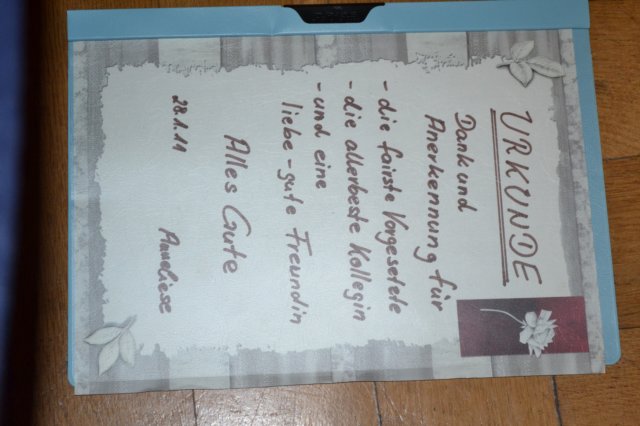 URKUNDE
Dank und
Anerkennung für
- die fairste Vorgesetzte
- die allerbeste Kollegin
- und eine
liebe - gute Freundin
Alles Gute
28.1.11
Anneliese